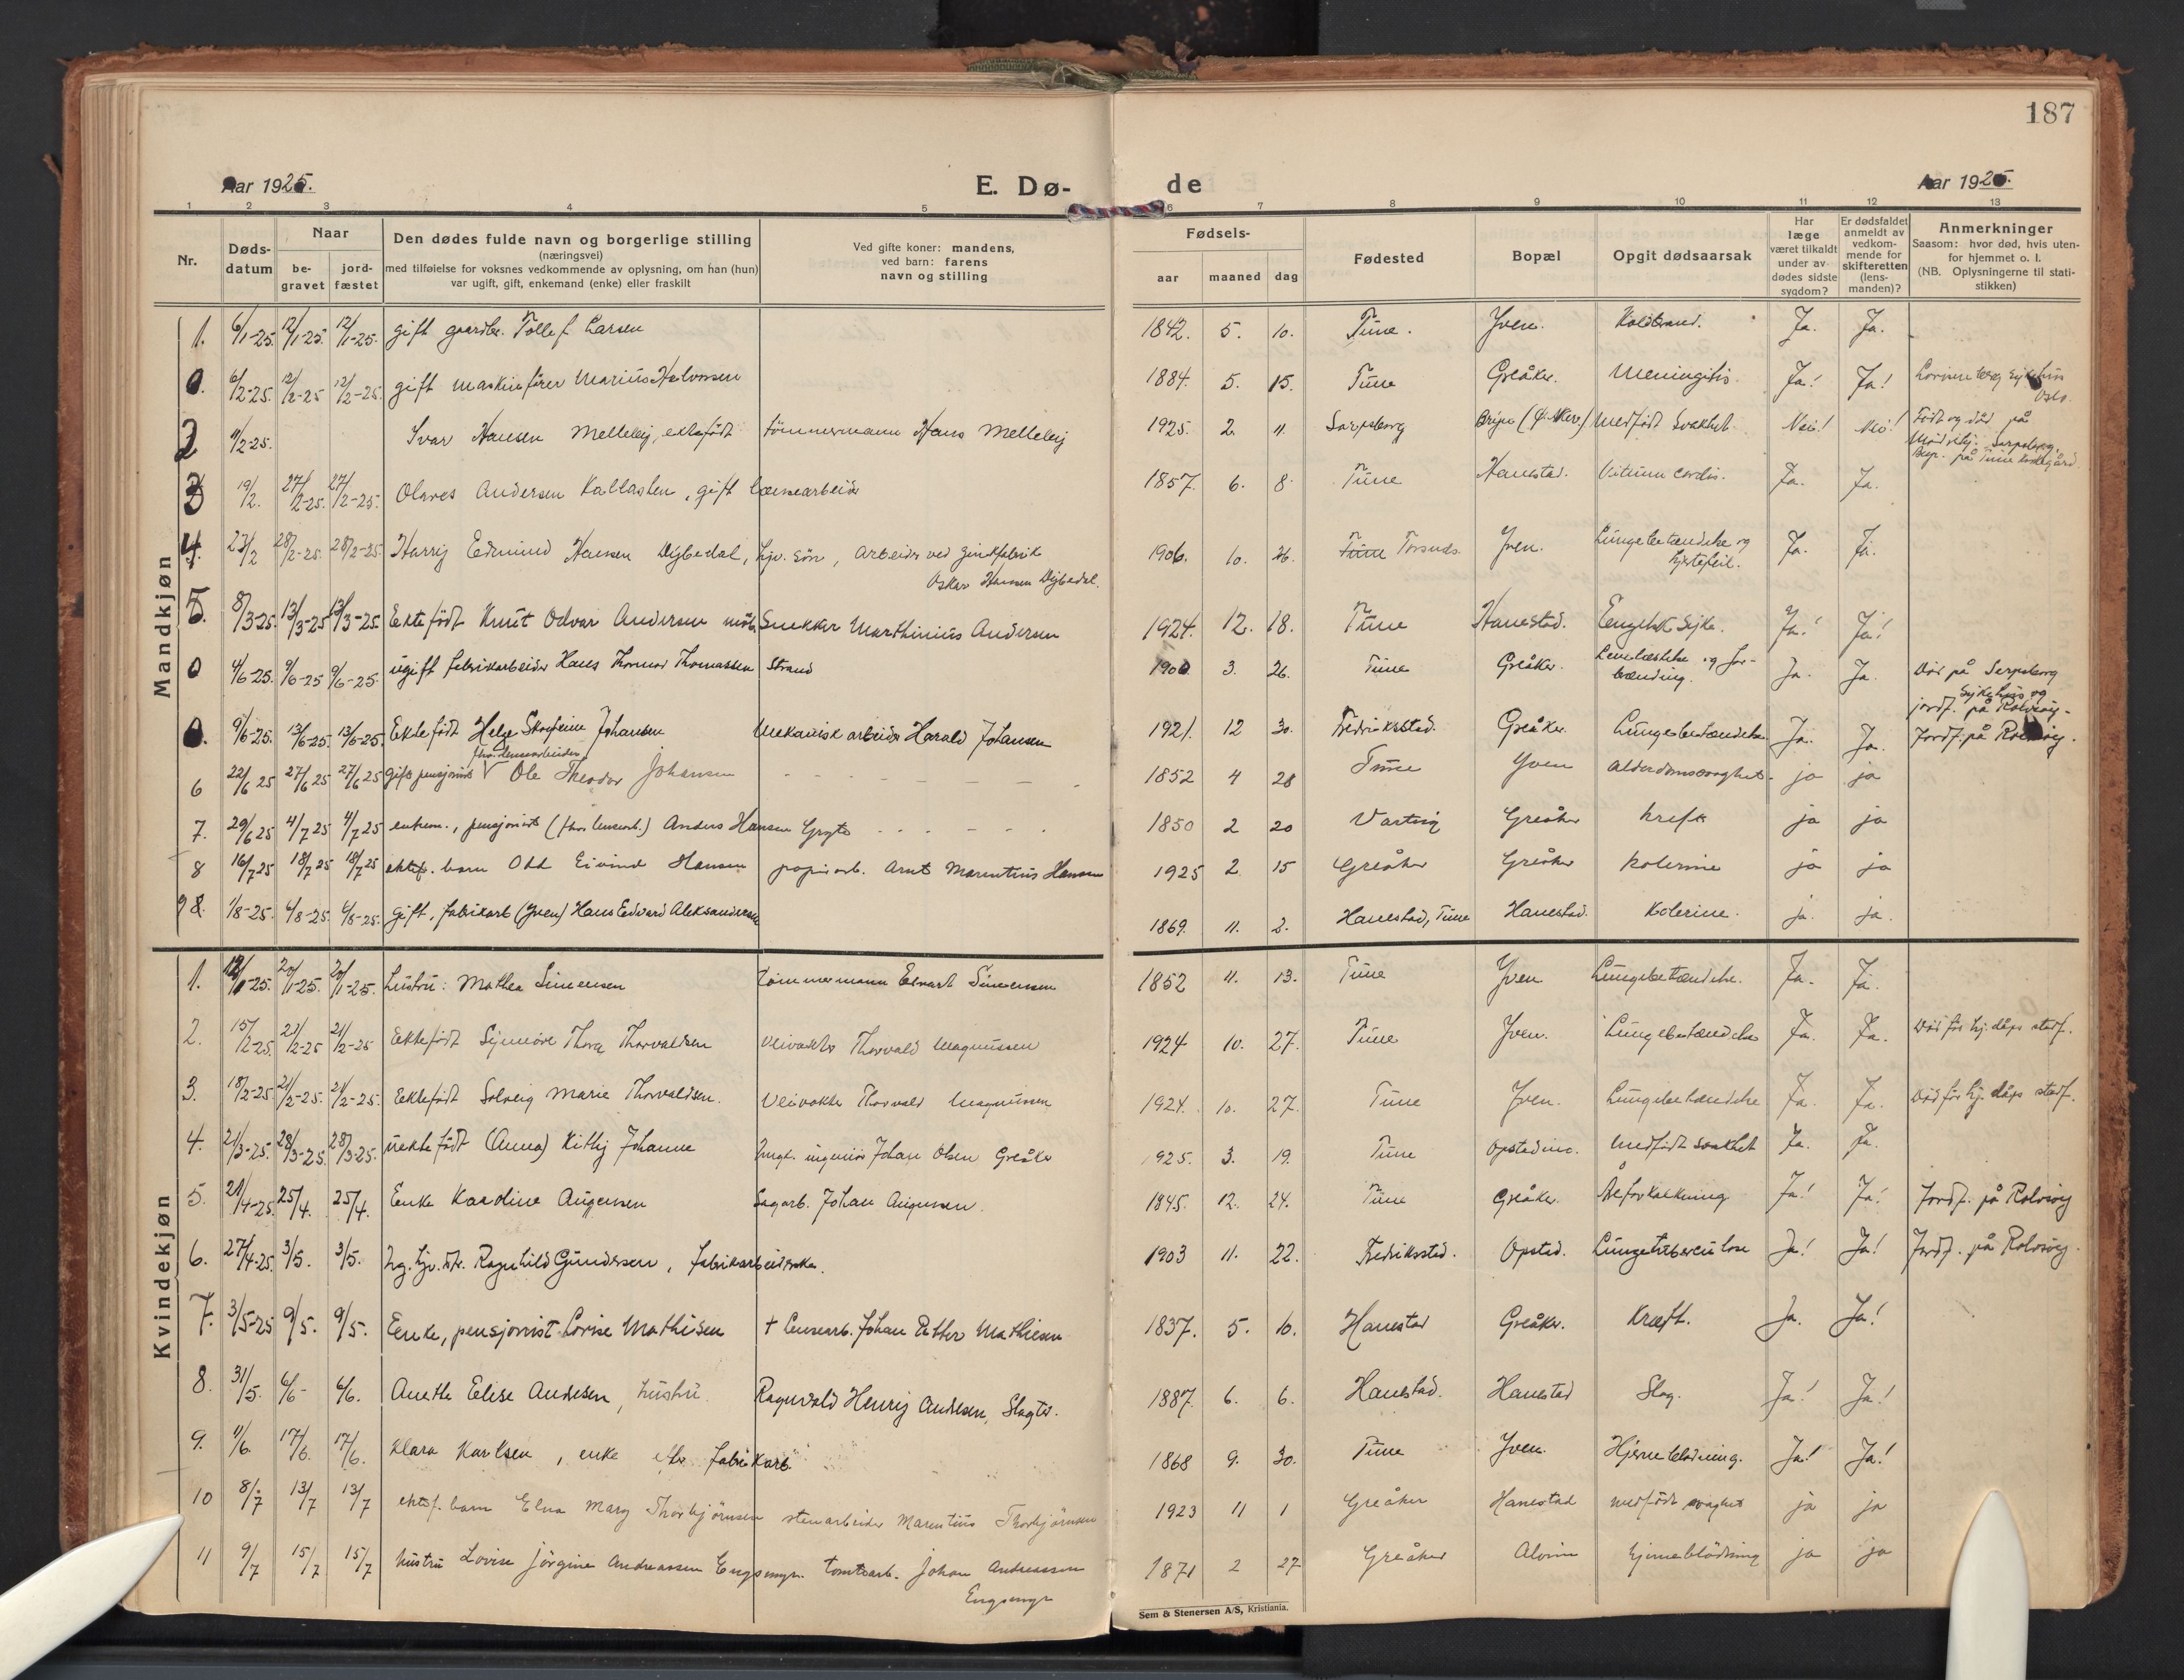 187
Aar 1925.
E. Dø-
de
Aar 1925.
1 2 3 4 5 6 7 8 9 10 11 12 13
Nr.
Døds-
datum
Naar
be-
gravet
jord-
fæstet
Den dødes fulde navn og borgerlige stilling
(næringsvei)
med tilføielse for voksnes vedkommende av oplysning, om han (hun)
var ugift, gift, enkemand (enke) eller fraskilt
Ved gifte koner: mandens,
ved barn: farens
navn og stilling
Fødsels-
aar maaned dag
Fødested
Bopæl
Opgit dødsaarsak
Har
læge
været tilkaldt
under av-
dødes sidste
sygdom?
Er dødsfaldet
anmeldt av
vedkom-
mende for
skifteretten
(lens-
manden)?
Anmerkninger
Saasom: hvor død, hvis uten-
for hjemmet o. l.
(NB. Oplysningerne til stati-
stikken)
Mandkjøn
1. 6/1-25. 12/1-25. 12/1-25. gift gaardbr. Tollef Larsen 1842. 5. 10. Tune. Yven. Koldbrand. Ja. Ja.
0. 6/2-25. 12/2-25 12/2-25. gift maskinfører Marius Halvorsen 1884. 5. 15. Tune Greåker. Meningitis. Ja! Ja! Sykehus
Oslo.
2 11/2-25. Ivar Hansen Melleby, ektefødt tömmermann Hans Melleby 1925. 2. 11. Sarpsborg medfödt Svakhet Nei! Nei! Född og död på
Sarpsborg.
Begr. på Tune kirkegård.
3 19/2. 27/2-25. 27/2-25. Olaves Andersen Kallasten, gift lænsearbeider 1857. 6. 8. Tune Hanestad. Vitium cordis. Ja. Ja.
4. 23/2 28/2-25. 28/2-25. Harry Edmund Hansen Dybedal, hjv. sön, arbeider ved zinkfabrik
Oskar Hansen Dybedal. 1906. 10. 26. Tune Torsnes. Yven. Lungebetændelse og
hjertefeil. Ja. Ja.
5. 8/3-25. 13/3-25 13/3-25. Ektefödt Knut Odvar Andersen Snekker Marthinius Andersen 1924. 12. 18. Tune Hanestad. Engelsk syke. Ja! Ja!
0 4/6-25. 9/6-25 9/6-25. ugift fabrikarbeider Hans Thomassen Strand 1900 3. 26. Tune Greåker. Ja. Ja. Död på Sarpsborg
Sykehus og
jordf. på Rolvsöy.
0. 9/6-25. 13/6-25. 13/6-25. Ektefödt Helge Johansen Mekanisk arbeider Harald Johansen 1921. 12 30. Fredriksstad. Greåker. Lungebetændelse Ja. Ja. Jordf. på Rolvsöy.
6 22/6 25 27/6 25 27/6 25 gift pensjonist Ole Theodor Johansen 1852 4 28 Tune Yven alderdomssvaghet. ja ja
7. 29/6 25 4/7 25 4/7 25 enkem., pensjonist (fhv. lensearb.) Anders Hansen Gryte 1850 2 20 Varteig Greåker kreft ja ja
8 16/7 25 18/7 25 18/7 25 ektef. barn Odd Eivind Hansen papirarb. Arnt Marentius Hansen 1925 2. 15 Greåker Greåker kolerine ja ja
9 8. 1/8-25. 6/8-25. 6/8-25. gift, fabrikarb (Yven) Hans Edvard Aleksandersen 1869. 11. 2. Hanestad, Tune Hanestad. Kolerine. ja. ja.
Kvindekjøn
1. 12/1-25. 20/1-25. 20/1-25. Hustru: Mathea Simensen Tömmermann Edvart Simensen 1852 11. 13. Tune Yven Lungebetændelse. Ja. Ja.
2. 15/2-25. 21/2-25 21/2-25 Ektefödt Synnöve Thora Thorvaldsen Veivokter Thorvald Magnussen 1924 10. 27. Tune Yven. Lungebetændelse Ja. Ja. Död för hj. dåps stadf.
3. 18/2-25. 21/2-25. 21/2-25. Ektefödt Solveig Marie Thorvaldsen. Veivokter Thorvald Magnussen 1924. 10. 27. Tune Yven. Lungebetændelse Ja. Ja. Död för hj. dåps stadf.
4. 21/3-25. 28/3-25. 28/3-25. uektefödt (Anna) Kitty Johanne Ungk. ingeniör Johan Olsen Greåker 1925. 3. 19. Tune Opstad medfödt svakhet Ja. Ja.
5. 21/4-25. 25/4. 25/4. Enke Karoline Augensen Sagarb. Johan Augensen. 1845. 12. 24. Tune Greåker. Åreforkalkning Ja! Ja! Jordf. på Rolvsöy
6. 27/4-25. 3/5. 3/5. Ug. hjv. dtr. Ragnhild Gundersen, fabrikarbeiderske. 1903 11. 22. Fredriksstad. Opstad. Lungetuberculose Ja! Ja! Jordf. på Rolvsöy.
7. 3/5-25 9/5. 9/5. Enke, pensjonist Lovise Mathisen + Lensearb. Johan Petter Mathiesen 1837. 5. 10. Hanestad Greåker. Kræft. Ja. Ja!
8. 31/5. 6/6- 6/6. Anethe Elise Andresen, hustru. Ragnvald Henry Andresen, Slagter. 1887. 6. 6. Hanestad. Hanestad Slag. Ja! Ja!
9. 11/6. 17/6. 17/6. Klara Karlsen, enke efter fabrikarb. 1868 9. 30. Tune Yven. Hjerneblödning. Ja! Ja!
10 8/7 13/7 13/7 ektef. barn Elna Mary Thorbjörnsen stenarbeider Marentius Thorbjörnsen 1923 11 1 Greåker Hanestad medfödt svaghet ja ja
11 9/7 15/7 15/7 hustru Lovise Jörgine Andreassen Engsmyr. tomtearb. Johan Andreassen
Engsmyr 1871 2 27 Greåker Alvim hjerneblödning ja ja
Sem & Stenersen A/S, Kristiania.